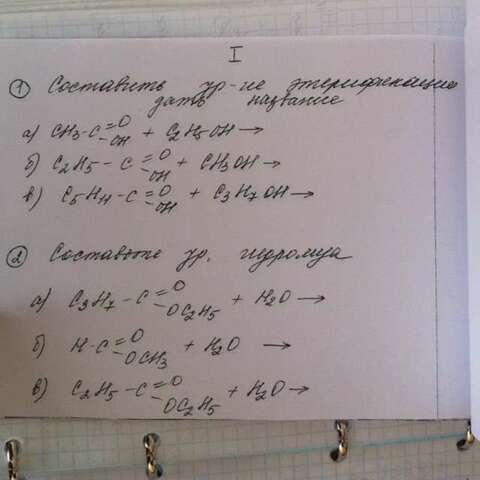 I
① Составить ур-ие этерификации
дать название
а) CH3-C=O -OH + C2H5OH→
б) C2H5-C=O -OH + CH3OH→
в) C5H11-C=O -OH + C3H7OH→
② Составьте ур. гидролиза
а) C3H7-C=O -OC2H5 + H2O→
б) H-C=O -OCH3 + H2O →
в) C2H5-C=O -OC2H5 + H2O→